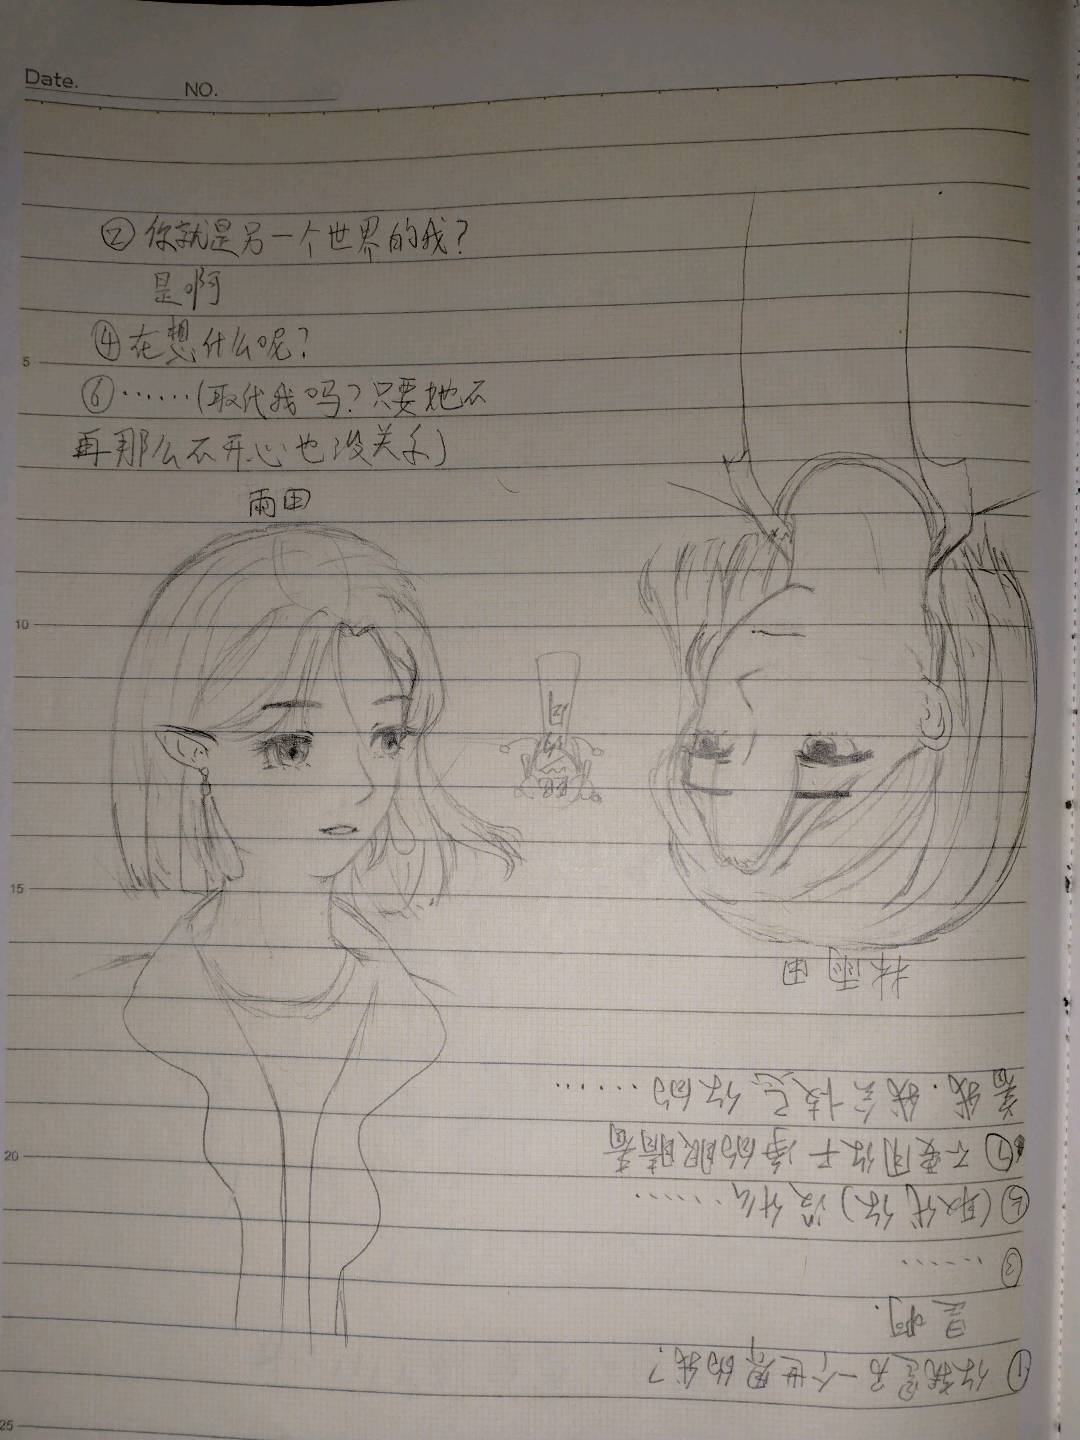 Date.
NO.
② 你就是另一个世界的我？
是啊
④ 在想什么呢？
⑥ ……（取代我吗？只要她不
再那么不开心也没关系）
雨田
5
10
15
20
25
① 你就是另一个世界的我？
是啊.
③ ……
⑤ （取代你）没什么……
⑦ 不要用你干净的眼睛看
着我.我会嫉妒你的……
林雨田